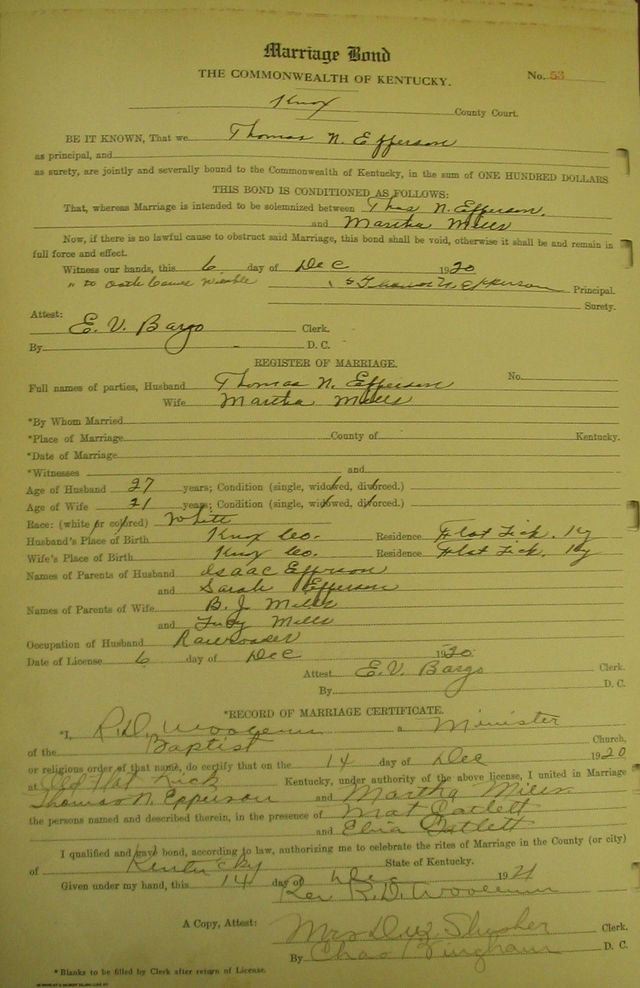 Marriage Bond
THE COMMONWEALTH OF KENTUCKY.
No. 53
Knox County Court.
BE IT KNOWN, That we Thomas N. Efferson
as principal, and
as surety, are jointly and severally bound to the Commonwealth of Kentucky, in the sum of ONE HUNDRED DOLLARS
THIS BOND IS CONDITIONED AS FOLLOWS:
That, whereas Marriage is intended to be solemnized between Thos N. Efferson.
and Martha Mills
Now, if there is no lawful cause to obstruct said Marriage, this bond shall be void, otherwise it shall be and remain in
full force and effect.
Witness our hands, this 6 day of Dec 1920
Thomas N. Epperson Principal.
Surety.
Attest:
E. V. Bargo Clerk.
By D. C.
REGISTER OF MARRIAGE.
No.
Full names of parties, Husband Thomas N. Efferson
Wife Martha Mills
*By Whom Married
*Place of Marriage County of Kentucky.
*Date of Marriage
*Witnesses and
Age of Husband 27 years; Condition (single, widowed, divorced.)
Age of Wife 21 years; Condition (single, widowed, divorced.)
Race: (white or colored) White
Husband's Place of Birth Knox Co. Residence Flat Lick, Ky
Wife's Place of Birth Knox Co. Residence Flat Lick, Ky
Names of Parents of Husband Isaac Efferson
and Sarah Efferson
Names of Parents of Wife B. J. Mills
and Mills
Occupation of Husband
Date of License 6 day of Dec 1920.
Attest E. V. Bargo Clerk.
By D. C.
*RECORD OF MARRIAGE CERTIFICATE.
*I, R. D. Woolum a Minister
of the Baptist Church,
or religious order of that name, do certify that on the 14 day of Dec 1920
at Old Flat Lick Kentucky, under authority of the above license, I united in Marriage
Thomas N. Epperson and Martha Mills
the persons named and described therein, in the presence of Mat Catlett
and Catlett
I qualified and gave bond, according to law, authorizing me to celebrate the rites of Marriage in the County (or city)
of Kentucky State of Kentucky.
Given under my hand, this 14 day of Dec 192
Rev R. D. Woolum
A Copy, Attest: Mrs Slusher Clerk.
By Chas Bingham D. C.
*Blanks to be filled by Clerk after return of License.